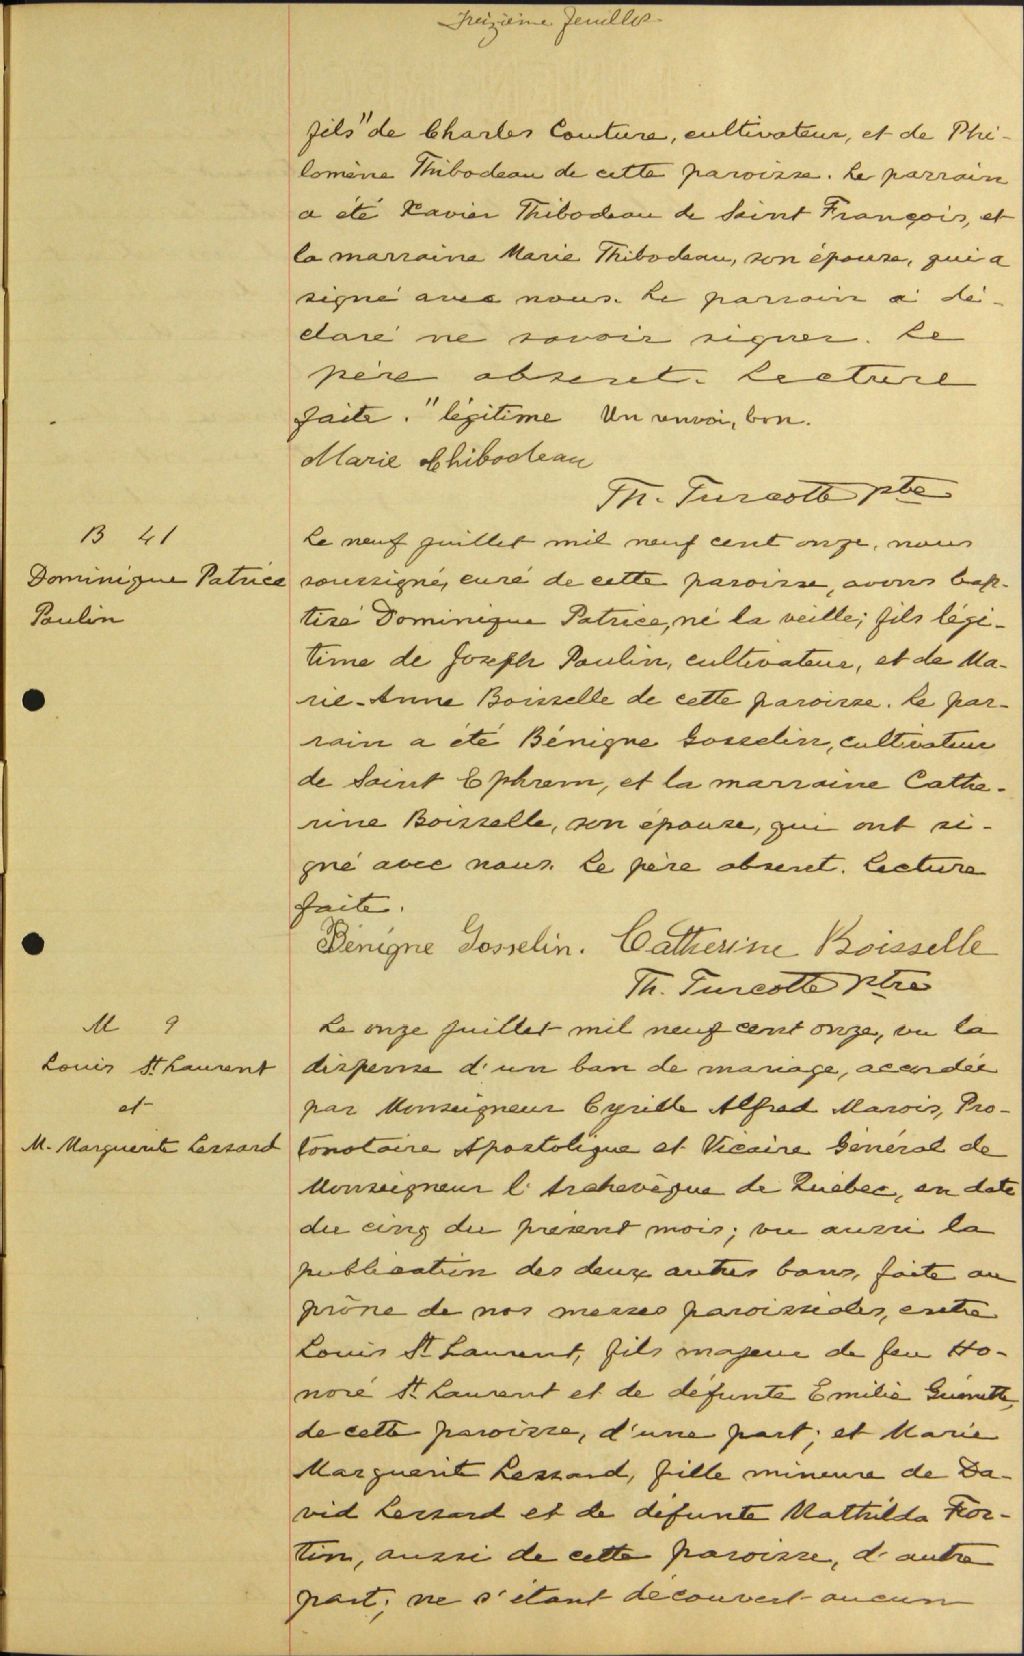 Treizième feuillet
fils" de Charles Couture, cultivateur, et de Phi-
lomène Thibodeau de cette paroisse. Le parrain
a été Xavier Thibodeau de Saint François, et
la marraine Marie Thibodeau, son épouse, qui a
signé avec nous. Le parrain a dé-
claré ne savoir signer. Le
père absent. Lecture
faite. "légitime Un renvoi, bon.
Marie Thibodeau
Th. Turcotte ptre
B 41
Dominique Patrice
Poulin
Le neuf juillet mil neuf cent onze, nous
soussigné, curé de cette paroisse, avons bap-
tisé Dominique Patrice, né la veille, fils légi-
time de Joseph Poulin, cultivateur, et de Ma-
rie-Anne Boisselle de cette paroisse. Le par-
rain a été Bénigne Gosselin, cultivateur
de Saint Ephrem, et la marraine Cathe-
rine Boisselle, son épouse, qui ont si-
gné avec nous. Le père absent. Lecture
faite.
Bénigne Gosselin. Catherine Boisselle
Th. Turcotte ptre
M 9
Louis St. Laurent
et
M. Marguerite Lessard
Le onze juillet mil neuf cent onze, vu la
dispense d'un ban de mariage, accordée
par Monseigneur Cyrille Alfred Marois, Pro-
tonotaire Apostolique et Vicaire Général de
Monseigneur l'Archevêque de Québec, en date
du cinq du présent mois; vu aussi la
publication des deux autres bans, faite au
prône de nos messes paroissiales, entre
Louis St. Laurent, fils majeur de feu Ho-
noré St. Laurent et de défunte Emilie Guénette,
de cette paroisse, d'une part; et Marie
Marguerite Lessard, fille mineure de Da-
vid Lessard et de défunte Mathilda For-
tin, aussi de cette paroisse, d'autre
part; ne s'étant découvert aucun